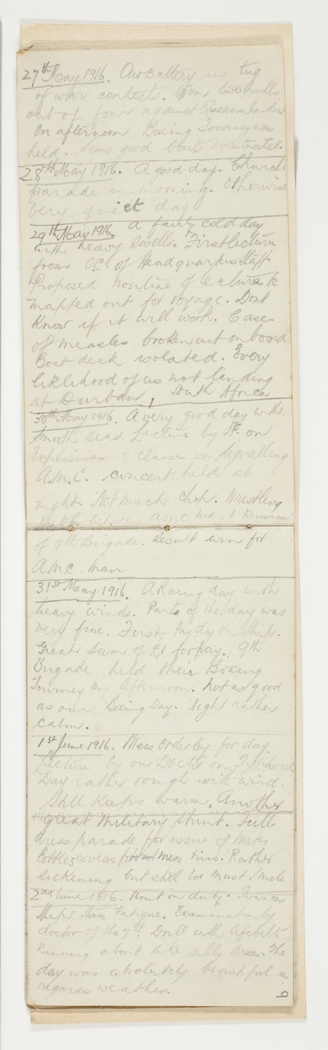 27th May 1916. Our Battery in tug
of war contests. Won two pulls
out of four against Queenslanders
On afternoon Boxing Tourney was
held. Some good bouts
28th May 1916. A good day. Church
parade in morning. Otherwise
very quiet day
29th May 1916. A fairly cold day
with heavy swells. First lecture
from O.C. of Headquarters Staff.
Proposed routine of lectures
mapped out for voyage. Dont
know if it will work. Cases
of measles broken out on board
Boat deck isolated. Every
liklihood of us not landing
at Durban, South Africa
30th May 1916. A very good day with
smooth seas. Lecture by Lt. on
Explosives & classes on signalling
A.M.C. concert held at
night. Not much chop. Wrestling
A.M.C. man &
of 9th Brigade. Result win for
A.M.C. man
31st May 1916. A Rainy day with
heavy winds. Parts of the day was
very fine. First Pay day on ship.
Great sum of £1 for pay. 9th
Brigade held their Boxing
Tourney on afternoon. Not as good
as our Boxing Day. Night rather
calm.
1st June 1916. Mess Orderly for day
Lecture by our Doctor on
Day rather rough with wind.
Still keeps warm. Another
great military stunt. Full
dress parade for issue of
covers for mess tins. Rather
sickening but still we must smile
2nd June 1916. Went on duty.
ships Fatigue. Examination by
doctor of the 9th. Dont
running about like silly The
day was absolutely beautiful as
regards weather.
6